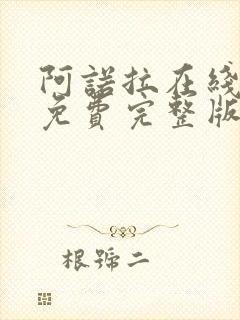 阿諾拉在綫
免費完整版
根號二